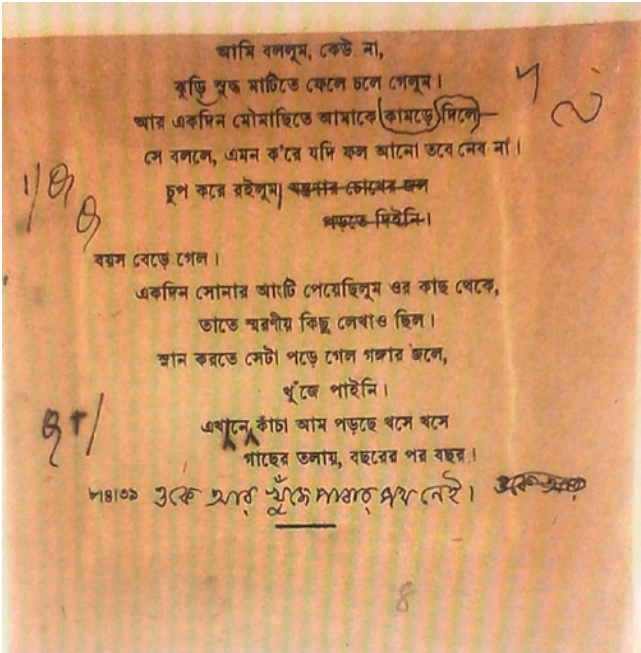 আমি বললুম, কেউ না,
ঝুড়ি সুদ্ধ মাটিতে ফেলে চলে গেলুম।
আর একদিন মৌমাছিতে আমাকে কামড়ে দিলে
সে বললে, এমন ক'রে যদি ফল আনো তবে নেব না।
চুপ করে রইলুম। যন্ত্রণার চোখের জল
পড়তে দিইনি।
বয়স বেড়ে গেল।
একদিন সোনার আংটি পেয়েছিলুম ওর কাছ থেকে,
তাতে স্মরণীয় কিছু লেখাও ছিল।
স্নান করতে সেটা পড়ে গেল গঙ্গার জলে,
খুঁজে পাইনি।
এখানে কাঁচা আম পড়ছে খসে খসে
গাছের তলায়, বছরের পর বছর।
৮।৪।৩৯ ওকে আর খুঁজে পাবার পথ নেই।
8